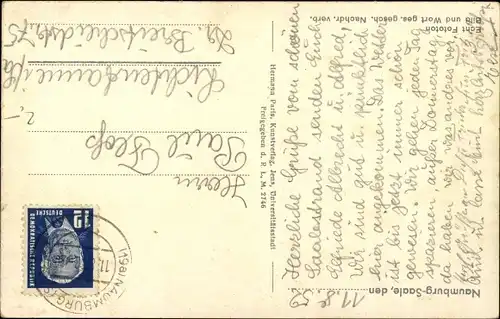 Naumburg-Saale, den
11.8.
Herzliche Grüße vom schönen
Saalestrand senden Euch
Elfriede Albrecht u. Alfred,
Wir sind gut u. gemütlich
hier angekommen. Das Wetter
ist bis jetzt immer schön
gewesen. Wir gehen jeden Tag
spazieren außer Donnerstag
da haben wir was anderes vor
Echt Fototon
Bild und Wort ges. gesch. Nachdr. verb.
Hermann Paris, Kunstverlag, Jena, Universitätsstadt
Freigegeben d. F. L. M. 2746
(19a) NAUMBURG
12
DEUTSCHE
DEMOKRATISCHE REPUBLIK
Herrn
Paul Floß
2,-
Lichtentanne i/Sa
Dr. Breitscheidstr. 75